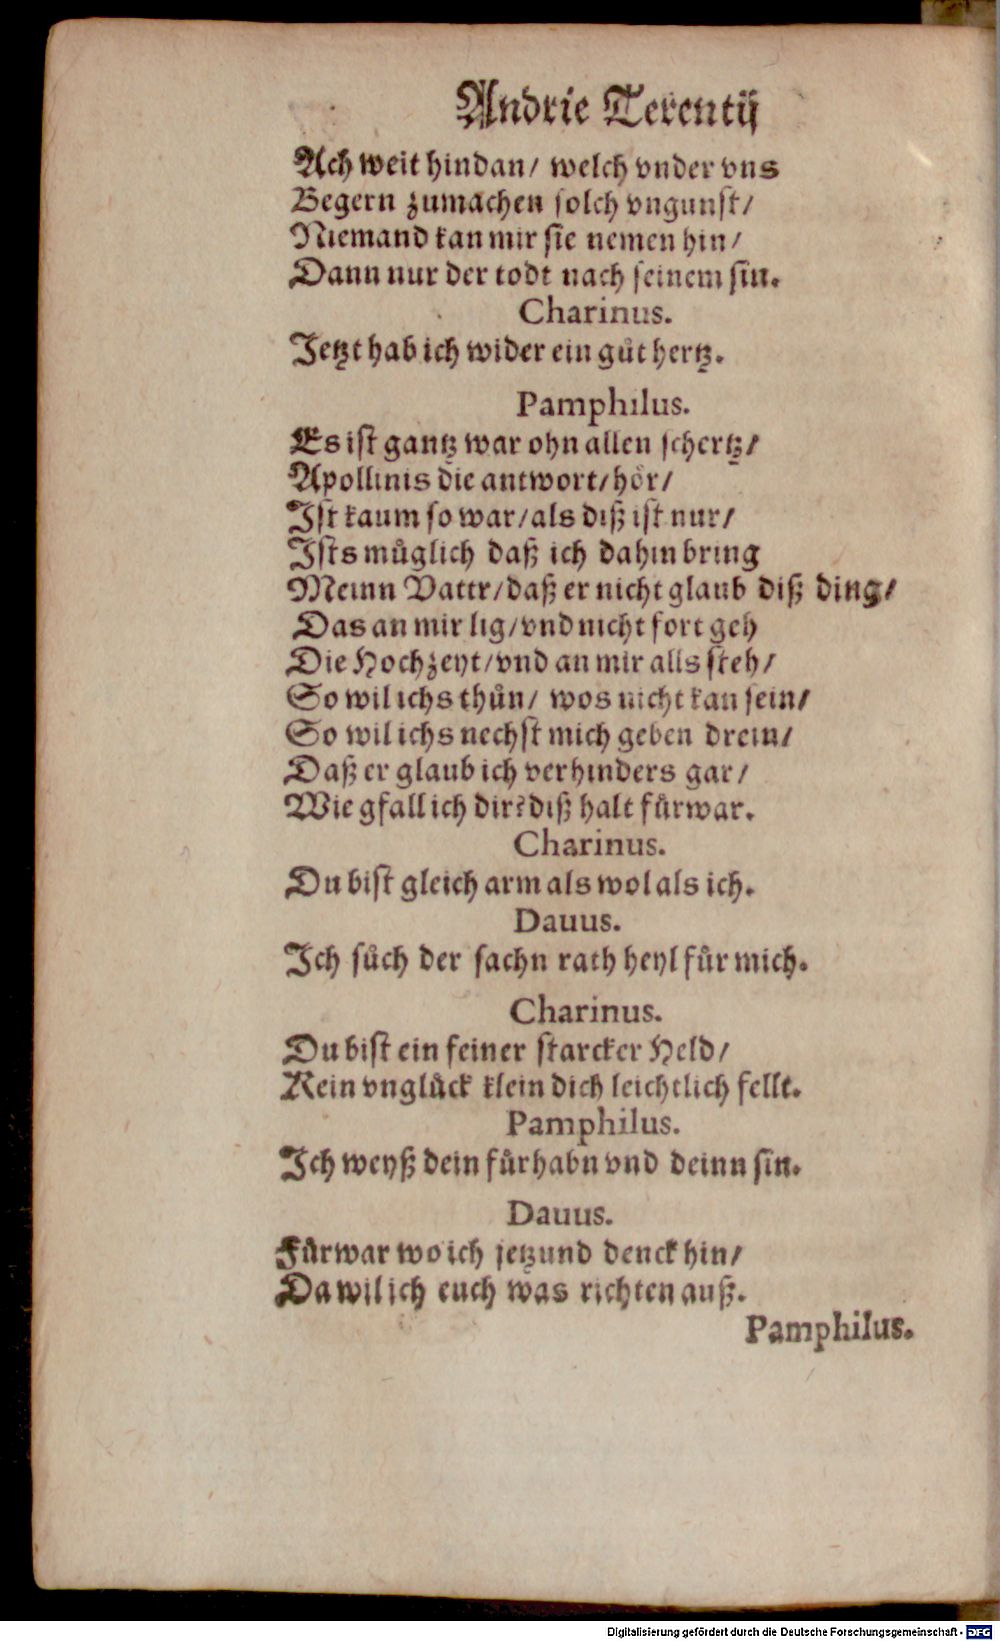 Andrie Terentij
Ach weit hindan/ welch vnder vns
Begern zumachen solch vngunst/
Niemand kan mir sie nemen hin/
Dann nur der todt nach seinem sin.
Charinus.
Jetzt hab ich wider ein gůt hertz.
Pamphilus.
Es ist gantz war ohn allen schertz/
Apollinis die antwort/ hör/
Jst kaum so war/ als diß ist nur/
Jsts můglich daß ich dahin bring
Meinn Vattr/ daß er nicht glaub diß ding/
Das an mir lig/ vnd nicht fort geh
Die Hochzeyt/ vnd an mir alls steh/
So wil ichs thůn/ wos nicht kan sein/
So wil ichs nechst mich geben drein/
Daß er glaub ich verhinders gar/
Wie gfall ich dir? diß halt fůrwar.
Charinus.
Du bist gleich arm als wol als ich.
Dauus.
Jch sůch der sachn rath heyl fůr mich.
Charinus.
Du bist ein feiner starcker Held/
Kein vnglůck klein dich leichtlich fellt.
Pamphilus.
Jch weyß dein fůrhabn vnd deinn sin.
Dauus.
Fůrwar wo ich jetzund denck hin/
Da wil ich euch was richten auß.
Pamphilus.
Digitalisierung gefördert durch die Deutsche Forschungsgemeinschaft - DFG